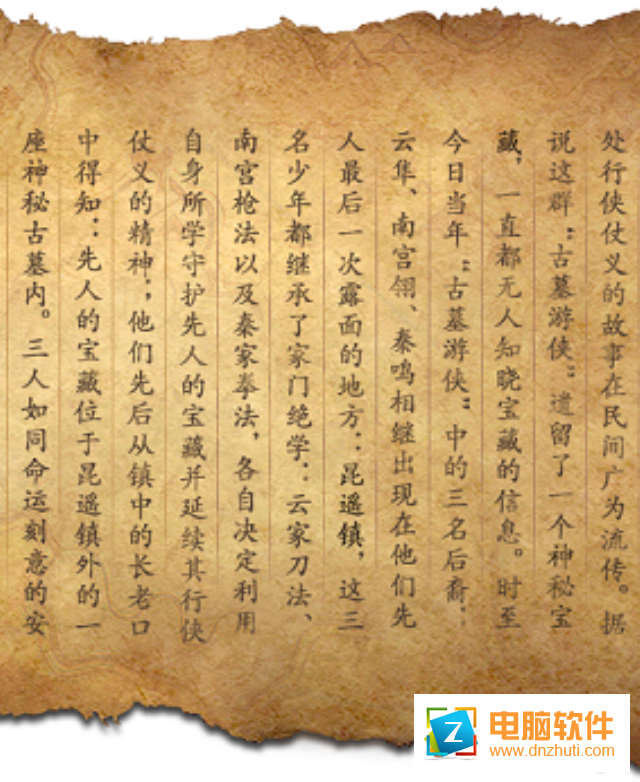 处行侠仗义的故事在民间广为流传。据
说这群“古墓游侠”遗留了一个神秘宝
藏，一直都无人知晓宝藏的信息。时至
今日当年“古墓游侠”中的三名后裔：
云隼、南宫翎、秦鸣相继出现在他们先
人最后一次露面的地方：昆遥镇，这三
名少年都继承了家门绝学：云家刀法、
南宫枪法以及秦家拳法，各自决定利用
自身所学守护先人的宝藏并延续其行侠
仗义的精神；他们先后从镇中的长老口
中得知：先人的宝藏位于昆遥镇外的一
座神秘古墓内。三人如同命运刻意的安
电脑软件
www.dnzhuti.com